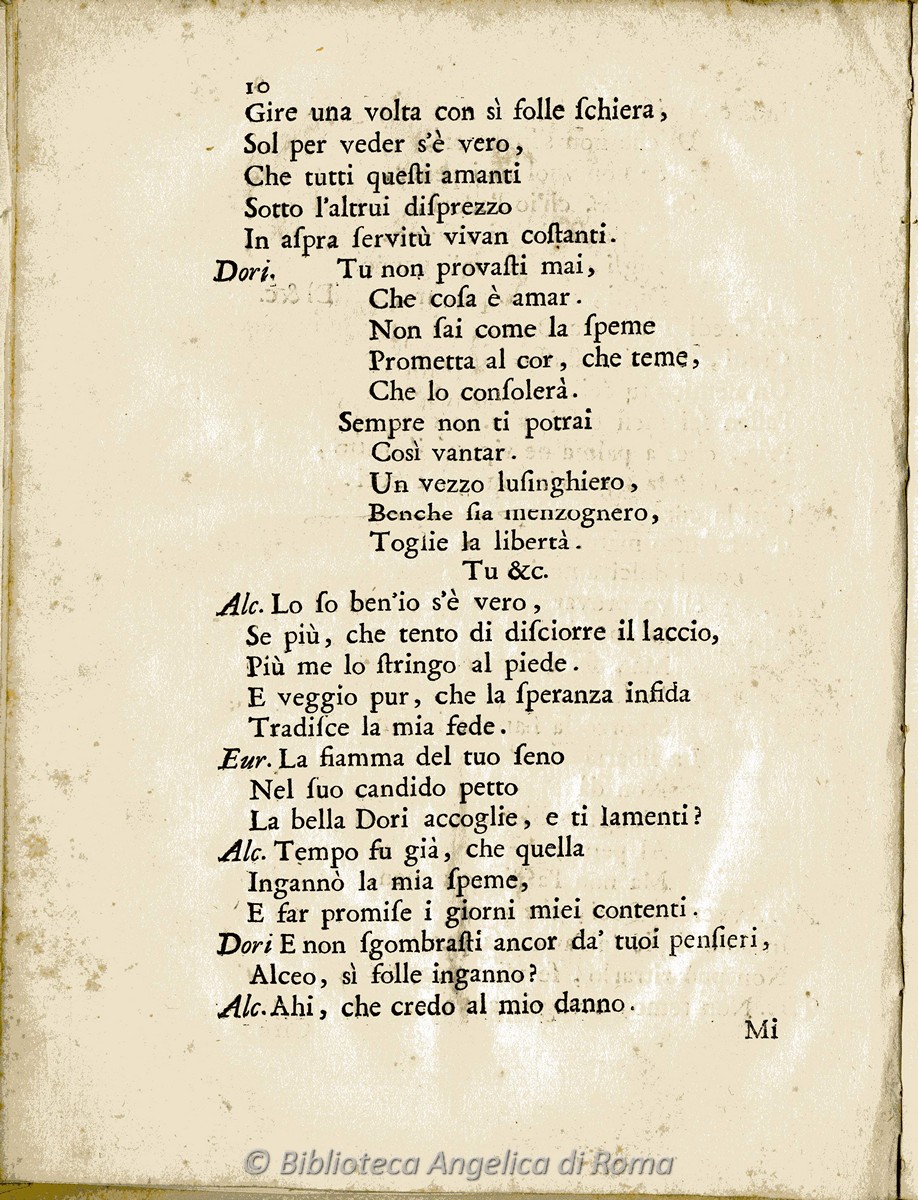 10
Gire una volta con sì folle ſchiera,
Sol per veder s'è vero,
Che tutti queſti amanti
Sotto l'altrui diſprezzo
In aſpra ſervitù vivan coſtanti.
Dori. Tu non provaſti mai,
Che coſa è amar.
Non ſai come la ſpeme
Prometta al cor, che teme,
Che lo conſolerà.
Sempre non ti potrai
Così vantar.
Un vezzo luſinghiero,
Benche ſia menzognero,
Toglie la libertà.
Tu &c.
Alc. Lo ſo ben'io s'è vero,
Se più, che tento di diſciorre il laccio,
Più me lo ſtringo al piede.
E veggio pur, che la ſperanza infida
Tradiſce la mia fede.
Eur. La fiamma del tuo ſeno
Nel ſuo candido petto
La bella Dori accoglie, e ti lamenti?
Alc. Tempo fu già, che quella
Ingannò la mia ſpeme,
E far promiſe i giorni miei contenti.
Dori E non ſgombraſti ancor da' tuoi penſieri,
Alceo, sì folle inganno?
Alc. Ahi, che credo al mio danno.
Mi
© Biblioteca Angelica di Roma